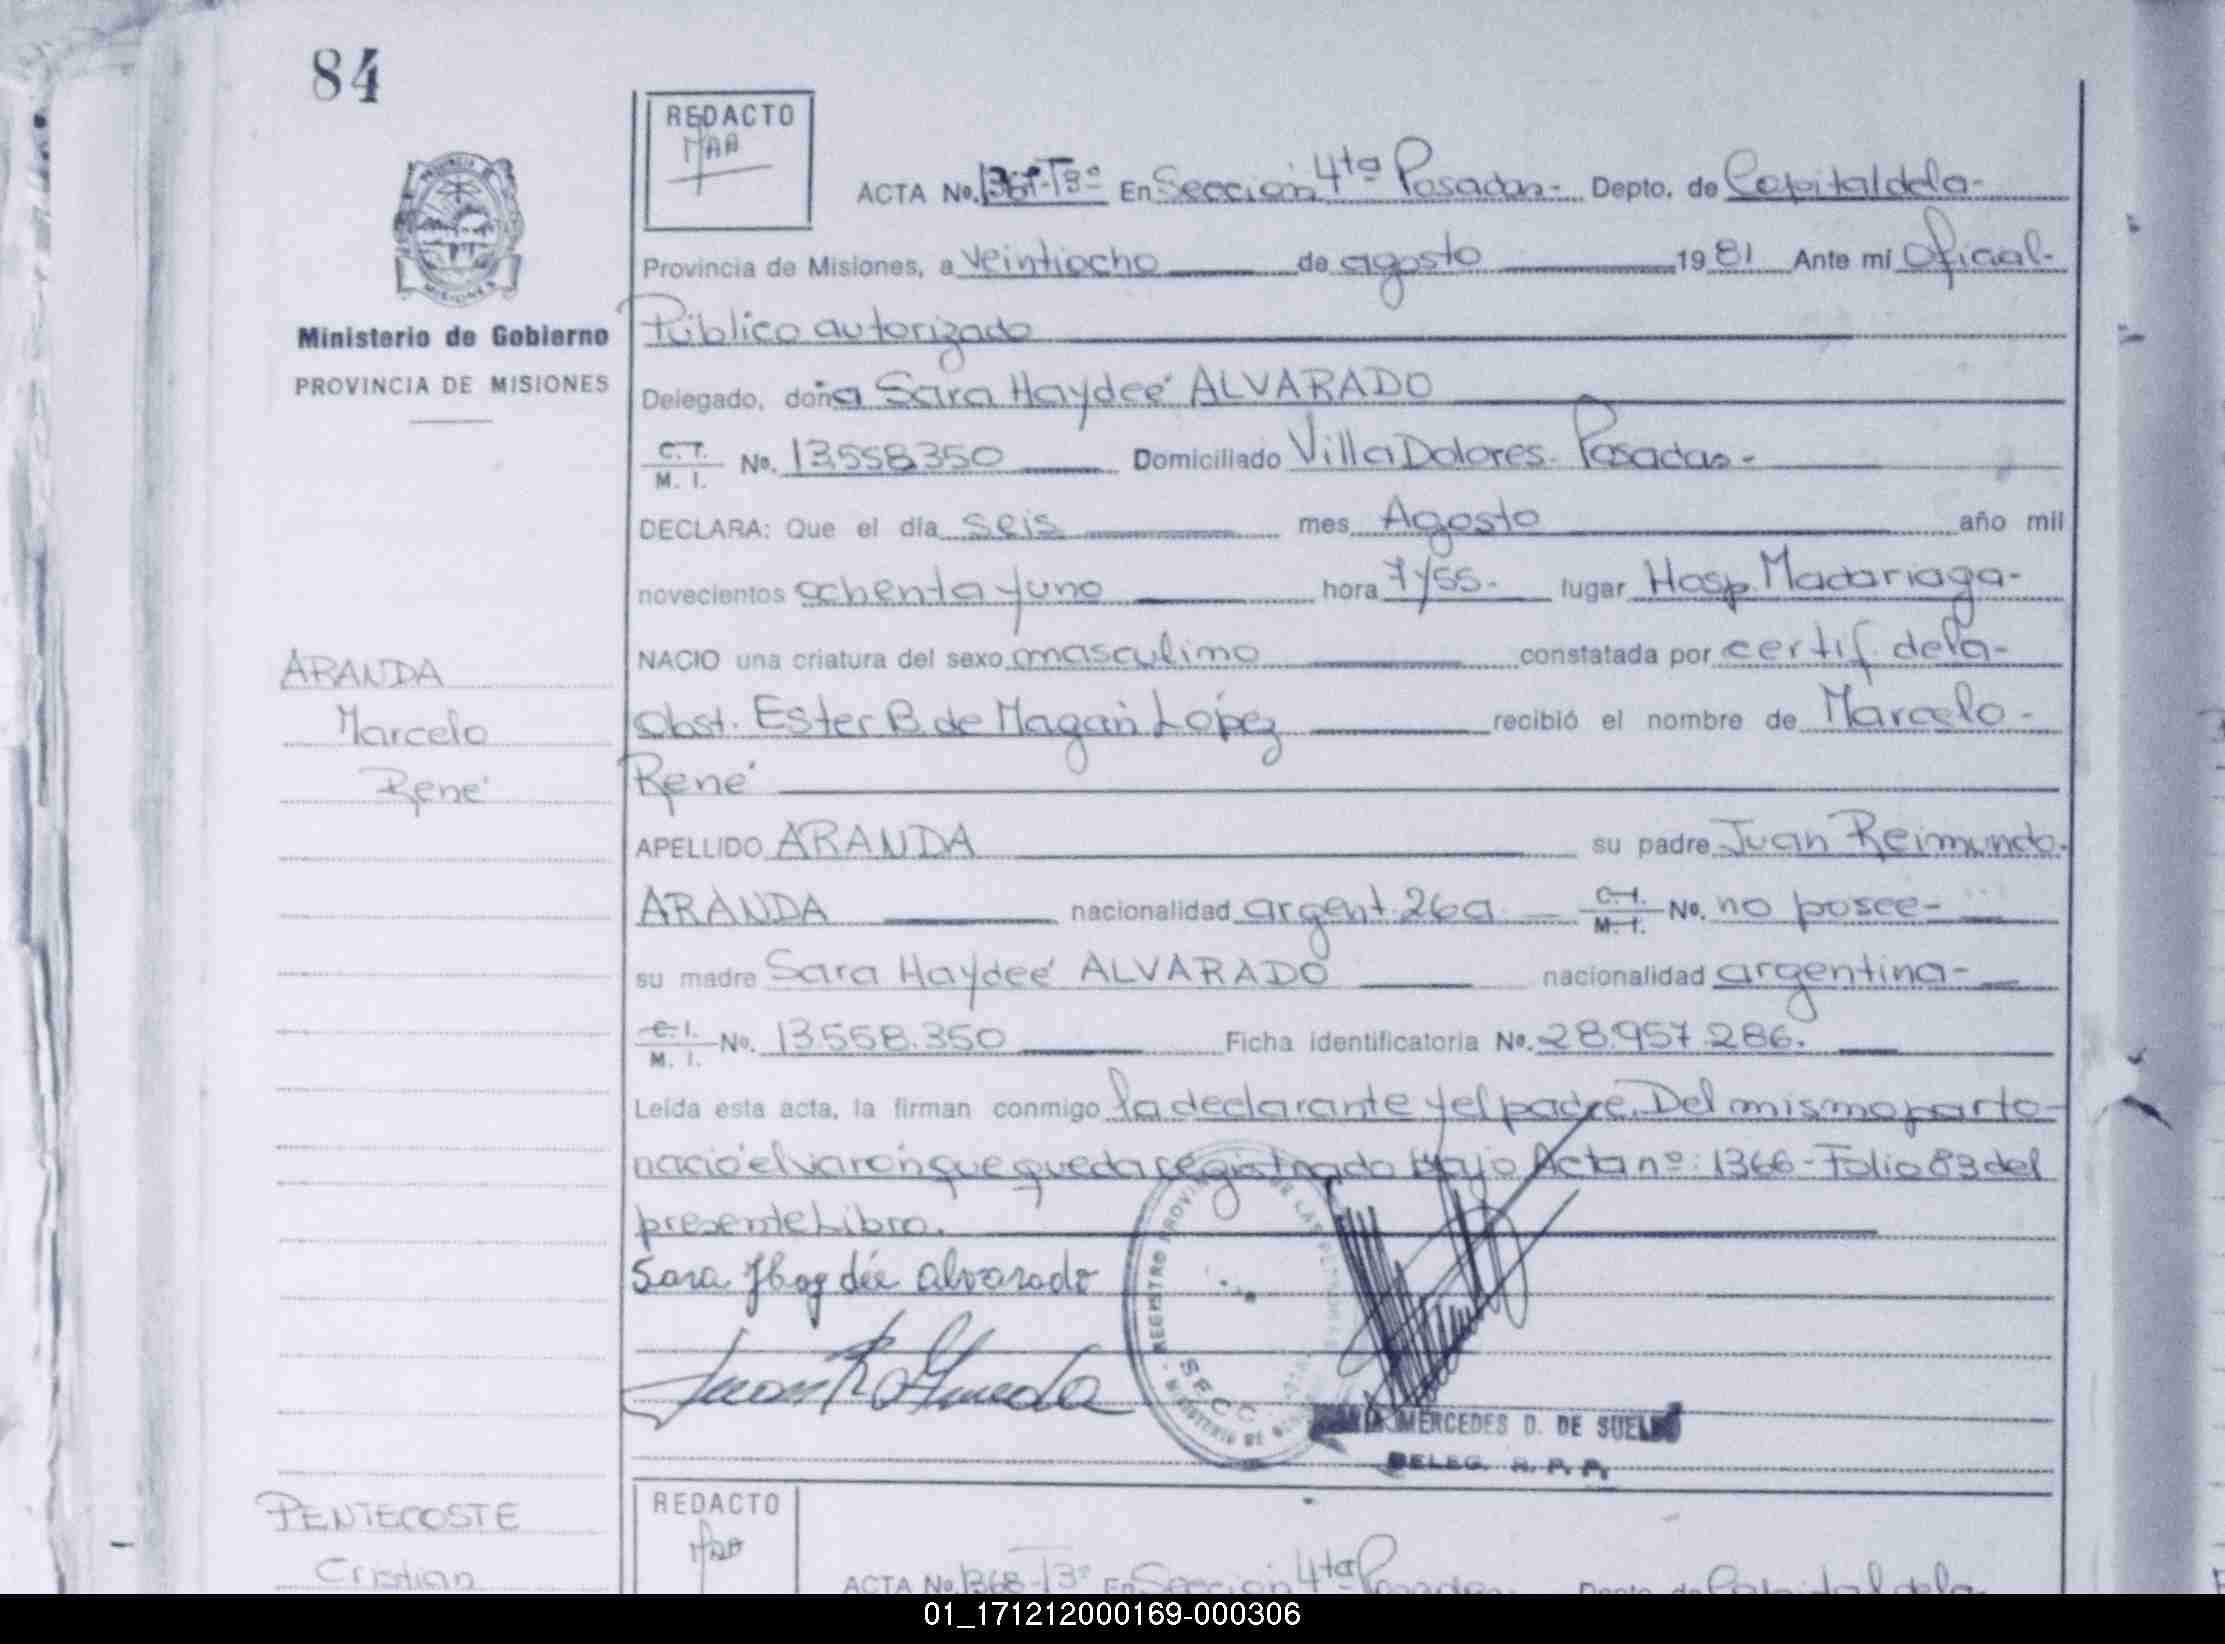 84
REDACTO
MAA
ACTA No. 1367-T3º En Sección 4ta Posadas.- Depto. de Capital de la-
Provincia de Misiones, a veintiocho de agosto 1981 Ante mí Oficial-
Público autorizado
Ministerio de Gobierno
PROVINCIA DE MISIONES
Delegado, doña Sara Haydeé ALVARADO
C. I. M. I. No. 13.558.350 Domiciliado Villa Dolores. Posadas-
DECLARA: Que el día seis mes Agosto año mil
novecientos ochenta y uno hora 7/55- lugar Hosp. Madariaga-
NACIO una criatura del sexo masculino constatada por certif. de la-
Obst. Ester B. de Magan López recibió el nombre de Marcelo-
René
ARANDA
Marcelo
René
APELLIDO ARANDA su padre Juan Reimundo-
ARANDA nacionalidad argent. 26a C. I. M. I. No. no posee-
su madre Sara Haydeé ALVARADO nacionalidad argentina-
C. I. M. I. No. 13.558.350 Ficha identificatoria No. 28.957.286.
Leída esta acta, la firman conmigo la declarante y el padre. Del mismo parto-
nació el varón que queda registrado bajo Acta nº: 1366-Folio 83 del
presente Libro.
Sara Haydée Alvarado
REGISTRO PROVIN DE LAS PERSONAS
SECC
MERCEDES D. DE
DELEG. R. P. P.
PENTECOSTE
Cristian
REDACTO
MAA
ACTA No. 1368-T3º En Sección 4ta Posadas- Depto. de Capital de la
01_171212000169-000306